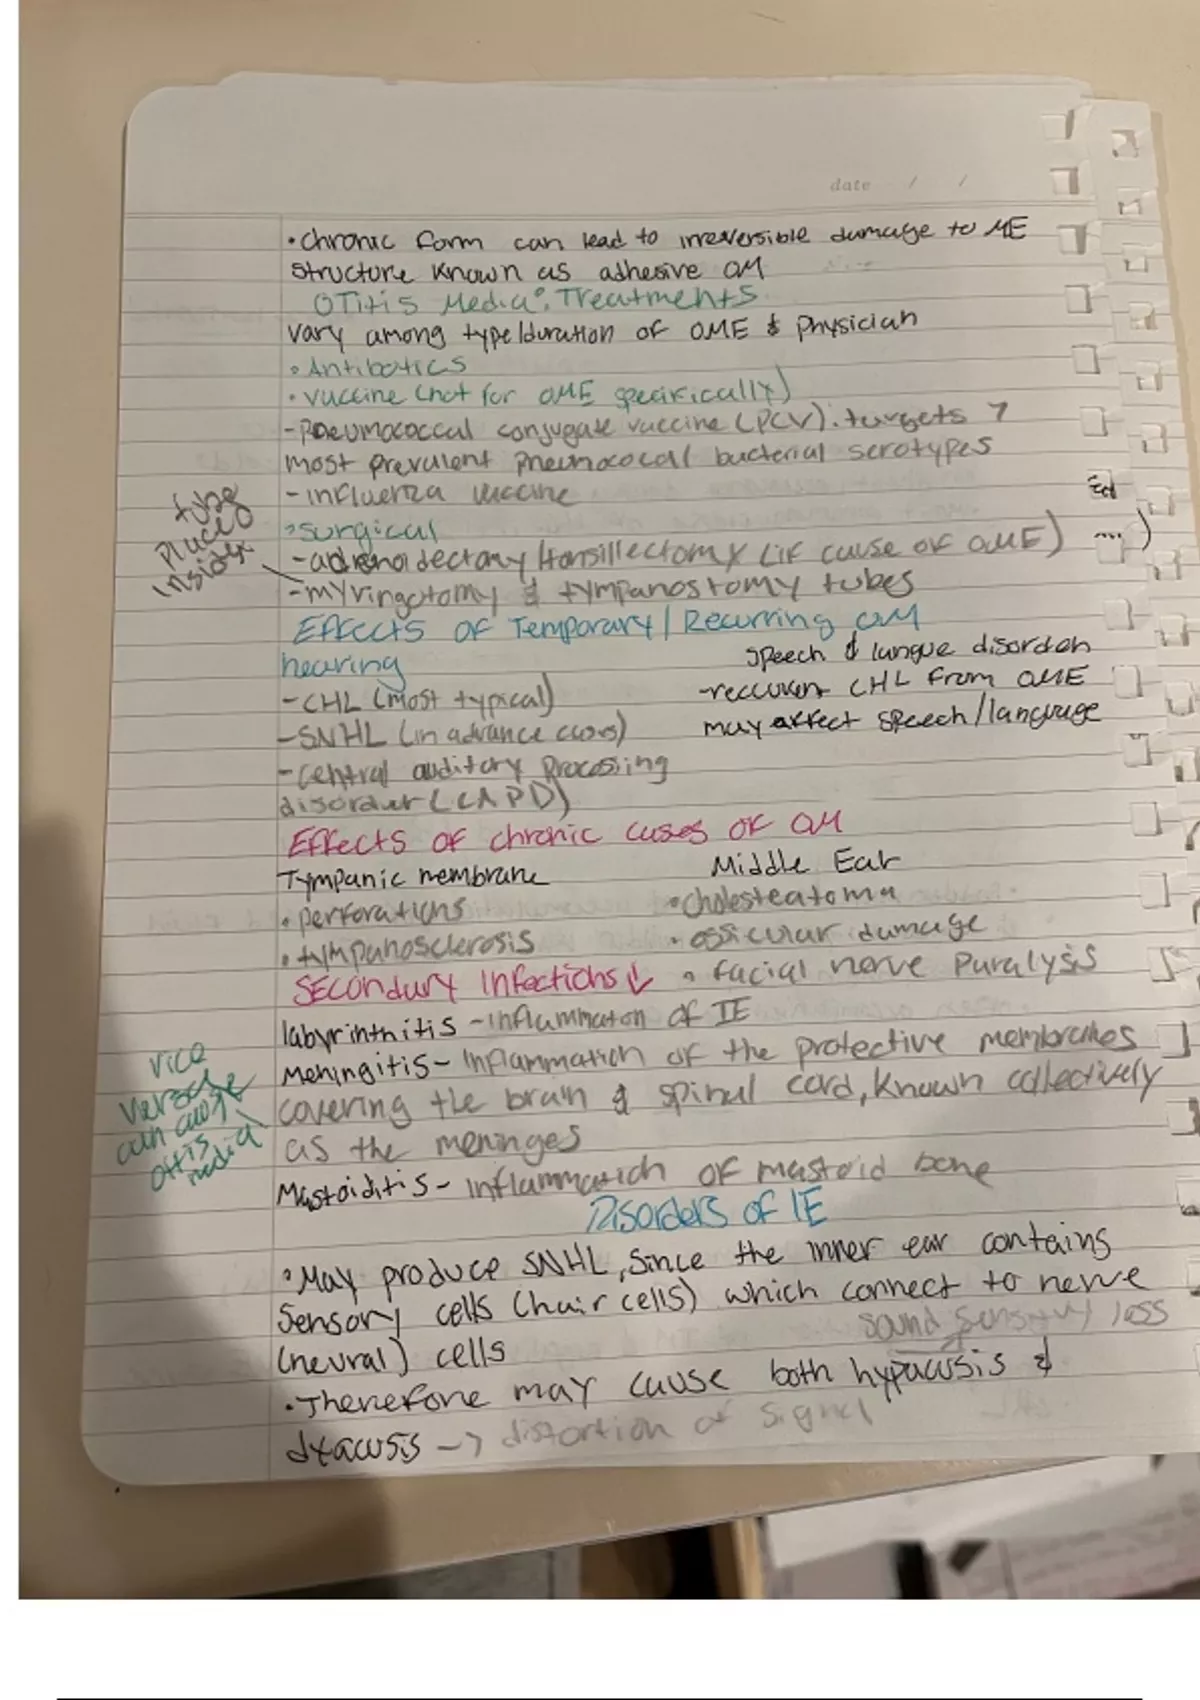 date / /
• chronic form can lead to irreversible damage to ME
structure known as adhesive OM
OTitis Media: Treatments
vary among type/duration of OME & physician
• Antibotics
• vaccine (not for OME specifically)
- pneumococcal conjugate vaccine (PCV). targets 7
most prevalent pneumococal bacterial serotypes
- influenza vaccine
tube
placed
inside
• surgical
- adrenoidectomy/tonsillectomy (if cause of OME)
- myringotomy & tympanostomy tubes
Effects of Temporary/Recurring OM
hearing
- CHL (most typical)
- SNHL (in advance cases)
- central auditory processing
disorder (CAPD)
speech & langue disorder
- reccuren CHL from OME
may affect speech/language
Effects of chronic cases of OM
Tympanic membrane
• perforations
• tympanosclerosis
Middle Ear
• cholesteatoma
• ossicular damage
• facial nerve paralysis
Secondary Infections ↓
labyrinthitis - inflammaton of IE
Meningitis - inflammation of the protective membranes
covering the brain & spinal cord, known collectively
as the meninges
vice
versa
can cause
otis
media
Mastoiditis - inflammation of mastoid bone
Disorders of IE
• May produce SNHL, since the inner ear contains
sensory cells (hair cells) which connect to nerve
(neural) cells
sound sensitivity loss
• Therefore may cause both hypacusis &
dyacusis -> distortion of signal